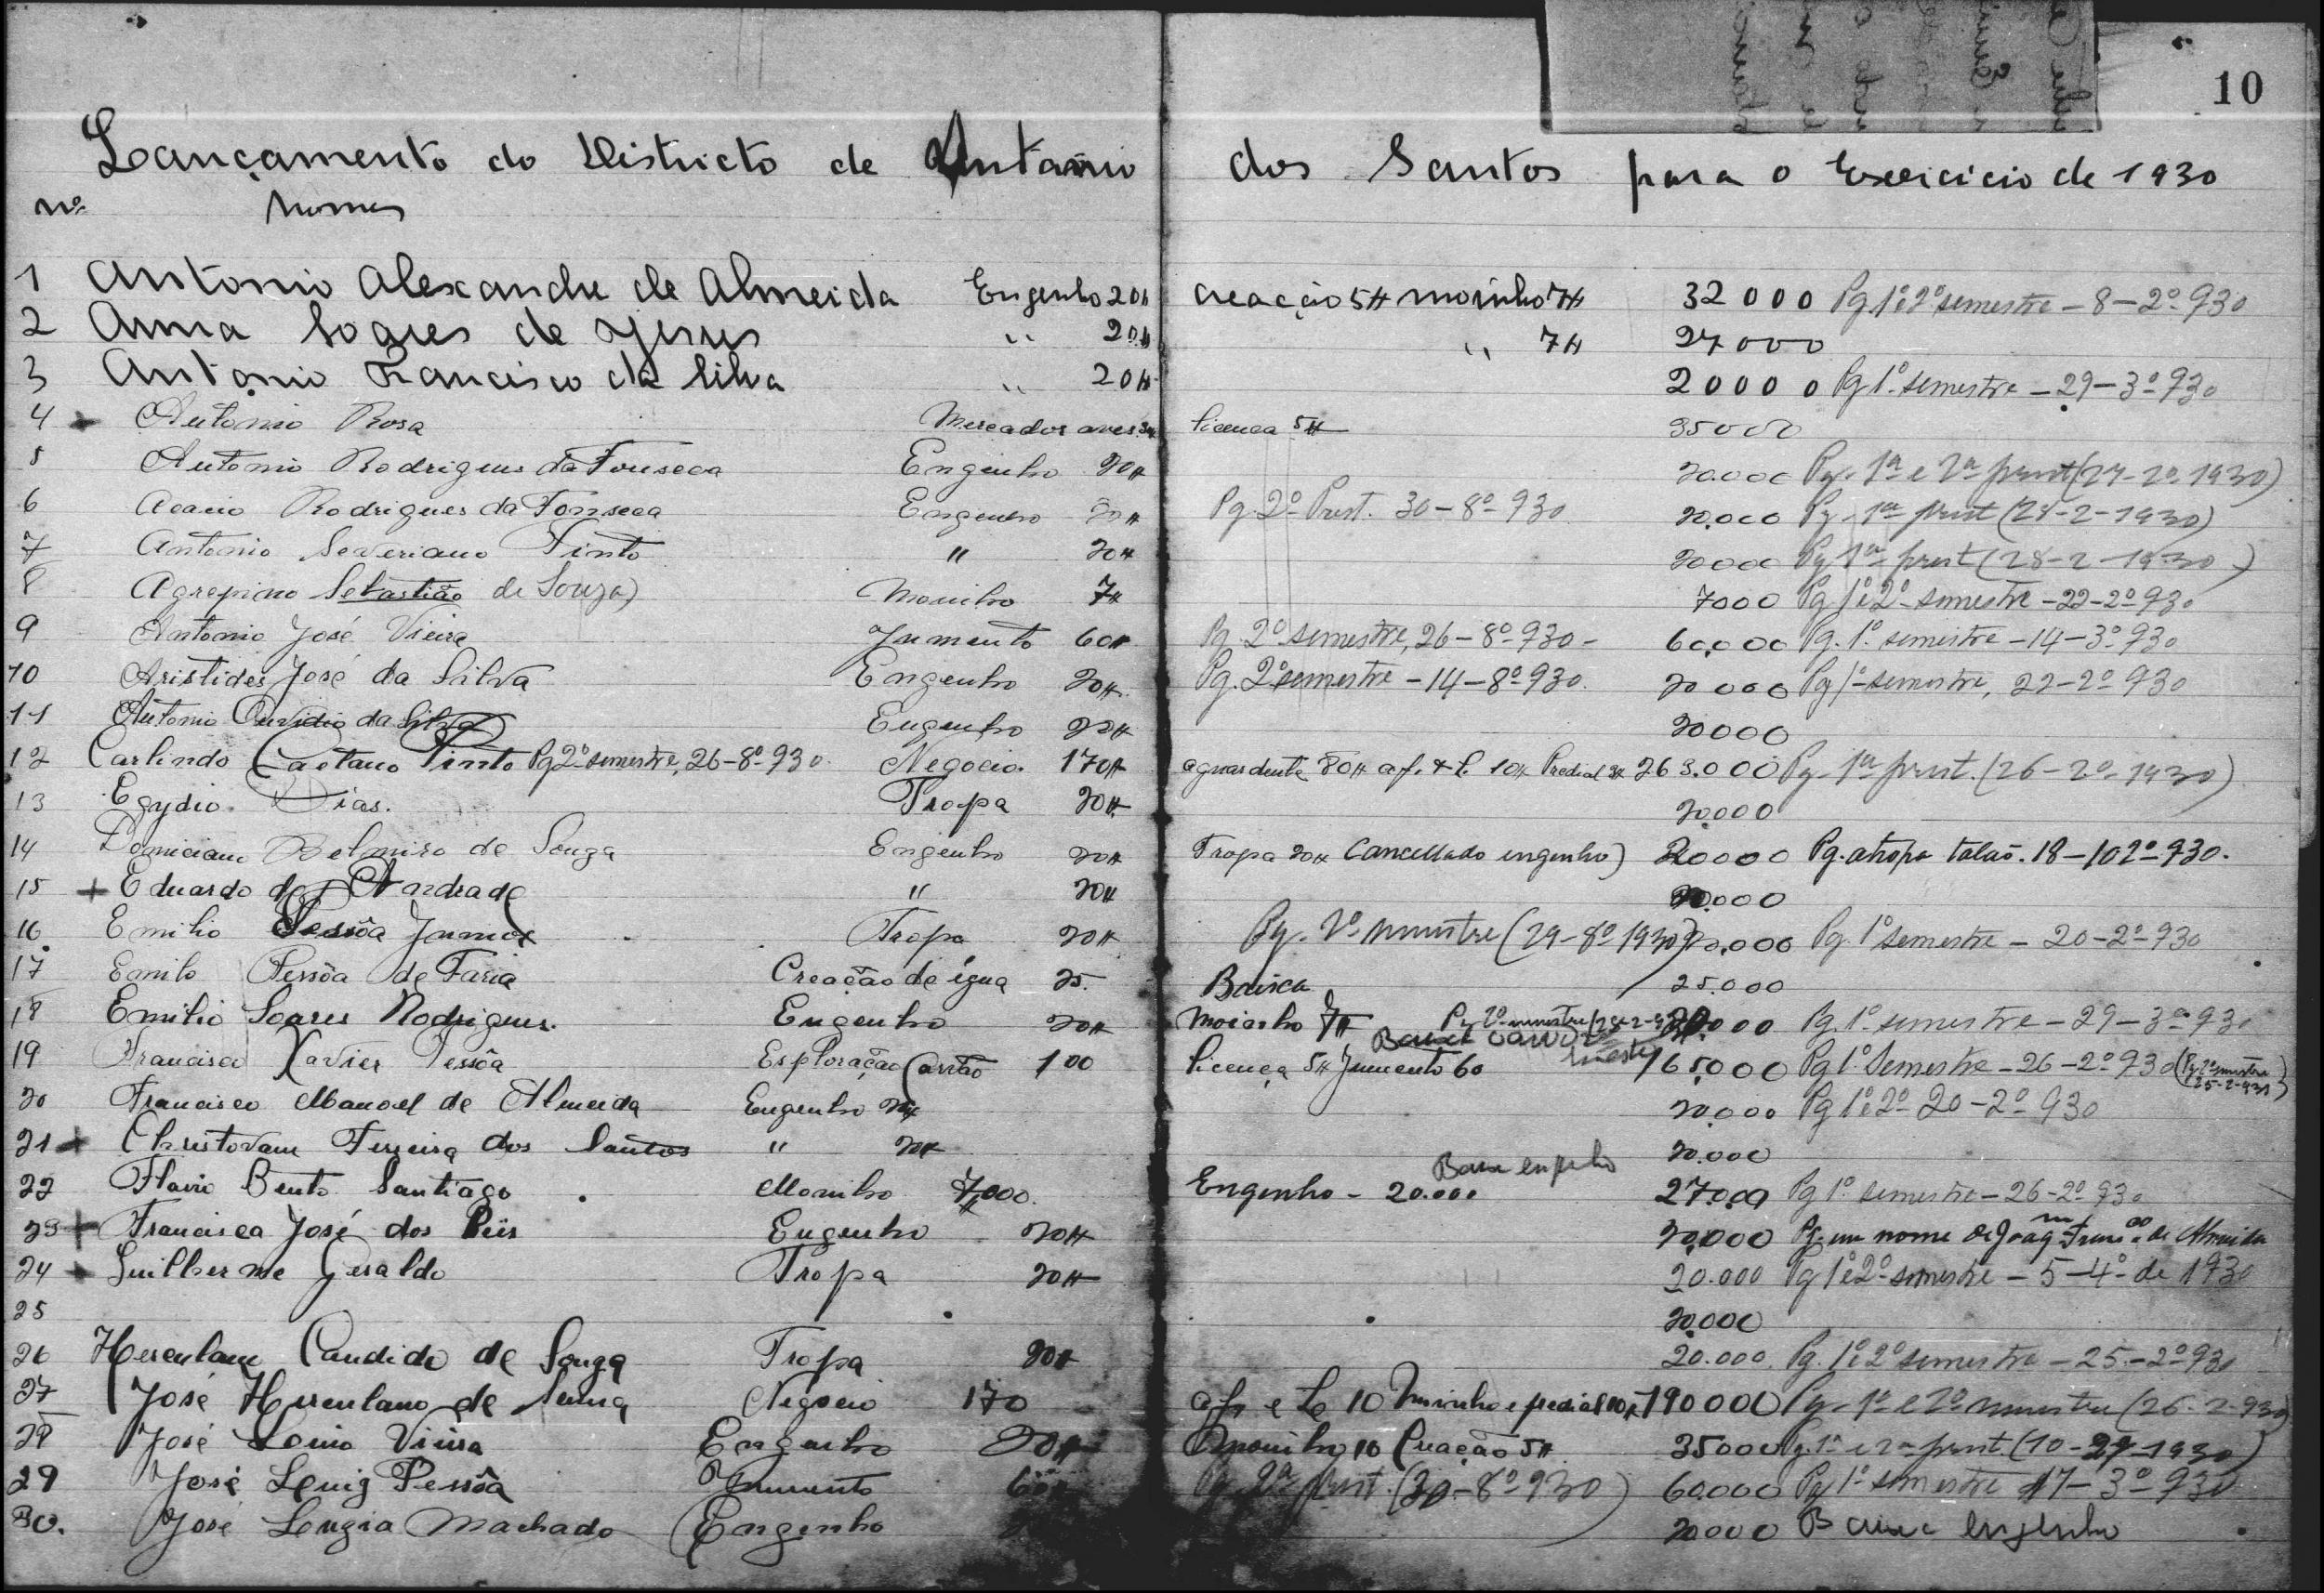 10
Lançamento do Districto de Antonio dos Santos para o Exercicio de 1930
Nº Nomes
1 Antonio Alexandre de Almeida Engenho 20# Creação 5# moinho 7# 32000 Pg 1º e 2º semestre - 8 - 2º 930
2 Anna Soares de Jesus " 20# " 7# 27000
3 Antonio Francisco da Silva " 20# 20000 Pg 1º semestre - 29 - 3º 930
4 + Antonio Rosa Mercador aves licença 5# 35000
5 Antonio Rodrigues da Fonseca Engenho 20# 20.000 Pg. 1ª e 2ª prest (27-2º 1930)
6 Acacio Rodrigues da Fonseca Engenho 20# Pg. 2º Prest. 30 - 8º 930 20.000 Pg. 1ª prest (28-2-1930)
7 Antonio Severiano Pinto " 20# 20000 Pg 1ª prest (28-2-1930)
8 Agrepino Sebastião de Souza Moinho 7# 7000 Pg 1º e 2º semestre - 22 - 2º 930
9 Antonio José Vieira Jumento 60# Pg. 2º semestre, 26 - 8º 930 - 60,000 Pg. 1º semestre - 14 - 3º 930
10 Aristides José da Silva Engenho 20# Pg. 2º semestre - 14 - 8º 930. 20000 Pg 1º semestre, 22 - 2º 930
11 Antonio Ouvidio da Silva Engenho 20# 20000
12 Carlindo Caetano Pinto Pg 2º semestre, 26 - 8º 930. Negocio. 170# aguardente 80# af. e l. 10# Predial 3# 263.000 Pg. 1ª prest. (26 - 2º 1930)
13 Egydio Dias. Tropa 20# 20.000
14 Domiciano Belmiro de Souza Engenho 20# Tropa 20# Cancellado engenho) 20000 Pg. a tropa talão. 18 - 10 2º 930.
15 + Eduardo de Andrade " 20# 20.000
16 Emilio Pessôa Junior Tropa 20# Pg. 2º semestre (29 - 8º 1930) 20,000 Pg. 1º semestre - 20 - 2º 930
17 Emilo Pessôa de Faria Creação de égua 25. Baixa 25.000
18 Emilio Soares Rodrigues. Engenho 20# Moinho 7# Pg 2º semestre 000 Pg. 1º semestre - 29 - 3º 930
19 Francisco Xavier Pessôa Esploração Carvão 100 licença 5# Jumento 60 Baixa carvão 165,000 Pg 1º Semestre - 26 - 2º 930 (Pg 2º semestre 25-2-931)
20 Francisco Manoel de Almeida Engenho 20# 20,000 Pg 1º e 2º 20 - 2º 930
21 + Christovam Ferreira dos Santos " 20# 20.000
22 Flavio Bento Santiago Moinho 7,000. Engenho - 20.000 Baixa engenho 27.000 Pg 1º semestre - 26 - 2º 930
23 + Francisca José dos Reis Engenho 20# 20,000 Pg. em nome de Joaqm Franco de Almeida
24 + Guilherme Geraldo Tropa 20# 20.000 Pg 1º e 2º semestre - 5 - 4º de 1930
25 20.000
26 Herculano Candido de Souza Tropa 20# 20.000. Pg. 1º e 2º semestre - 25 - 2º 930
27 José Herculano de Senna Negocio 170 af. e L. 10 Moinho e predial 10# 190000 Pg. 1º e 2º semestre (26-2-930)
28 José Louio Vieira Engenho 20# Moinho 10 Creação 5# 35000 Pg. 1ª e 2ª prest. (10 - 1930)
29 José Luiz Pessôa Jumento 60# Pg. 2ª prest. (30 - 8º 930) 60.000 Pg 1º semestre 17 - 3º 930
30. José Machado Engenho 20000 Baixa engenho